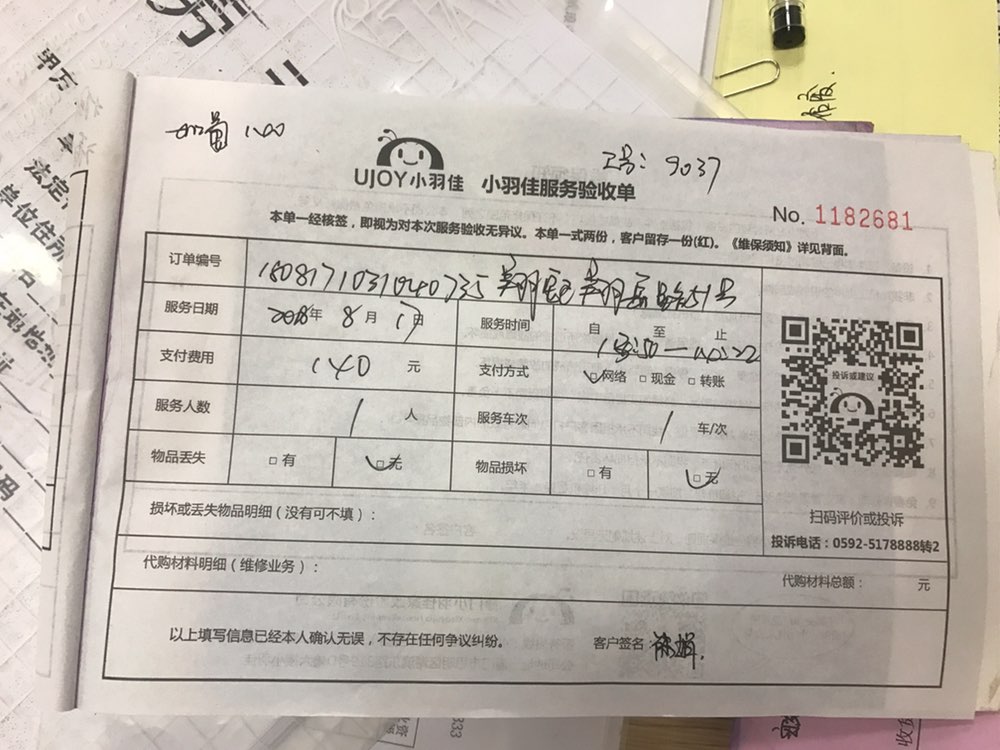 甲方
法定
单位住所
工号：9037
UJOY小羽佳 小羽佳服务验收单
No. 1182681
本单一经核签，即视为对本次服务验收无异议。本单一式两份，客户留存一份(红)。《维保须知》详见背面。
订单编号
服务日期 2018年 8月 17日 服务时间 自 至 止
支付费用 140 元 支付方式 □网络 □现金 □转账
服务人数 1 人 服务车次 1 车/次
物品丢失 □有 □无 物品损坏 □有 □无
投诉或建议
扫码评价或投诉
投诉电话：0592-5178888转2
损坏或丢失物品明细（没有可不填）：
代购材料明细（维修业务）： 代购材料总额： 元
以上填写信息已经本人确认无误，不存在任何争议纠纷。 客户签名：
333